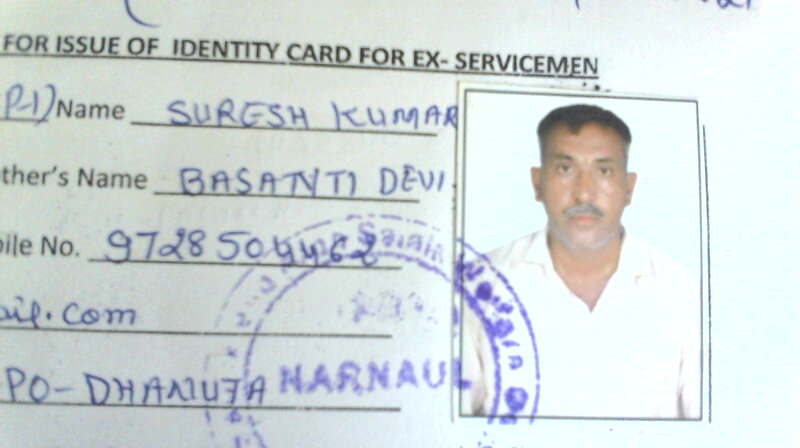 FOR ISSUE OF IDENTITY CARD FOR EX- SERVICEMEN
P-1) Name SURESH KUMAR
ther's Name BASANTI DEVI
ile No. 9728504462
ail.com
PO-DHANUTA NARNAUL